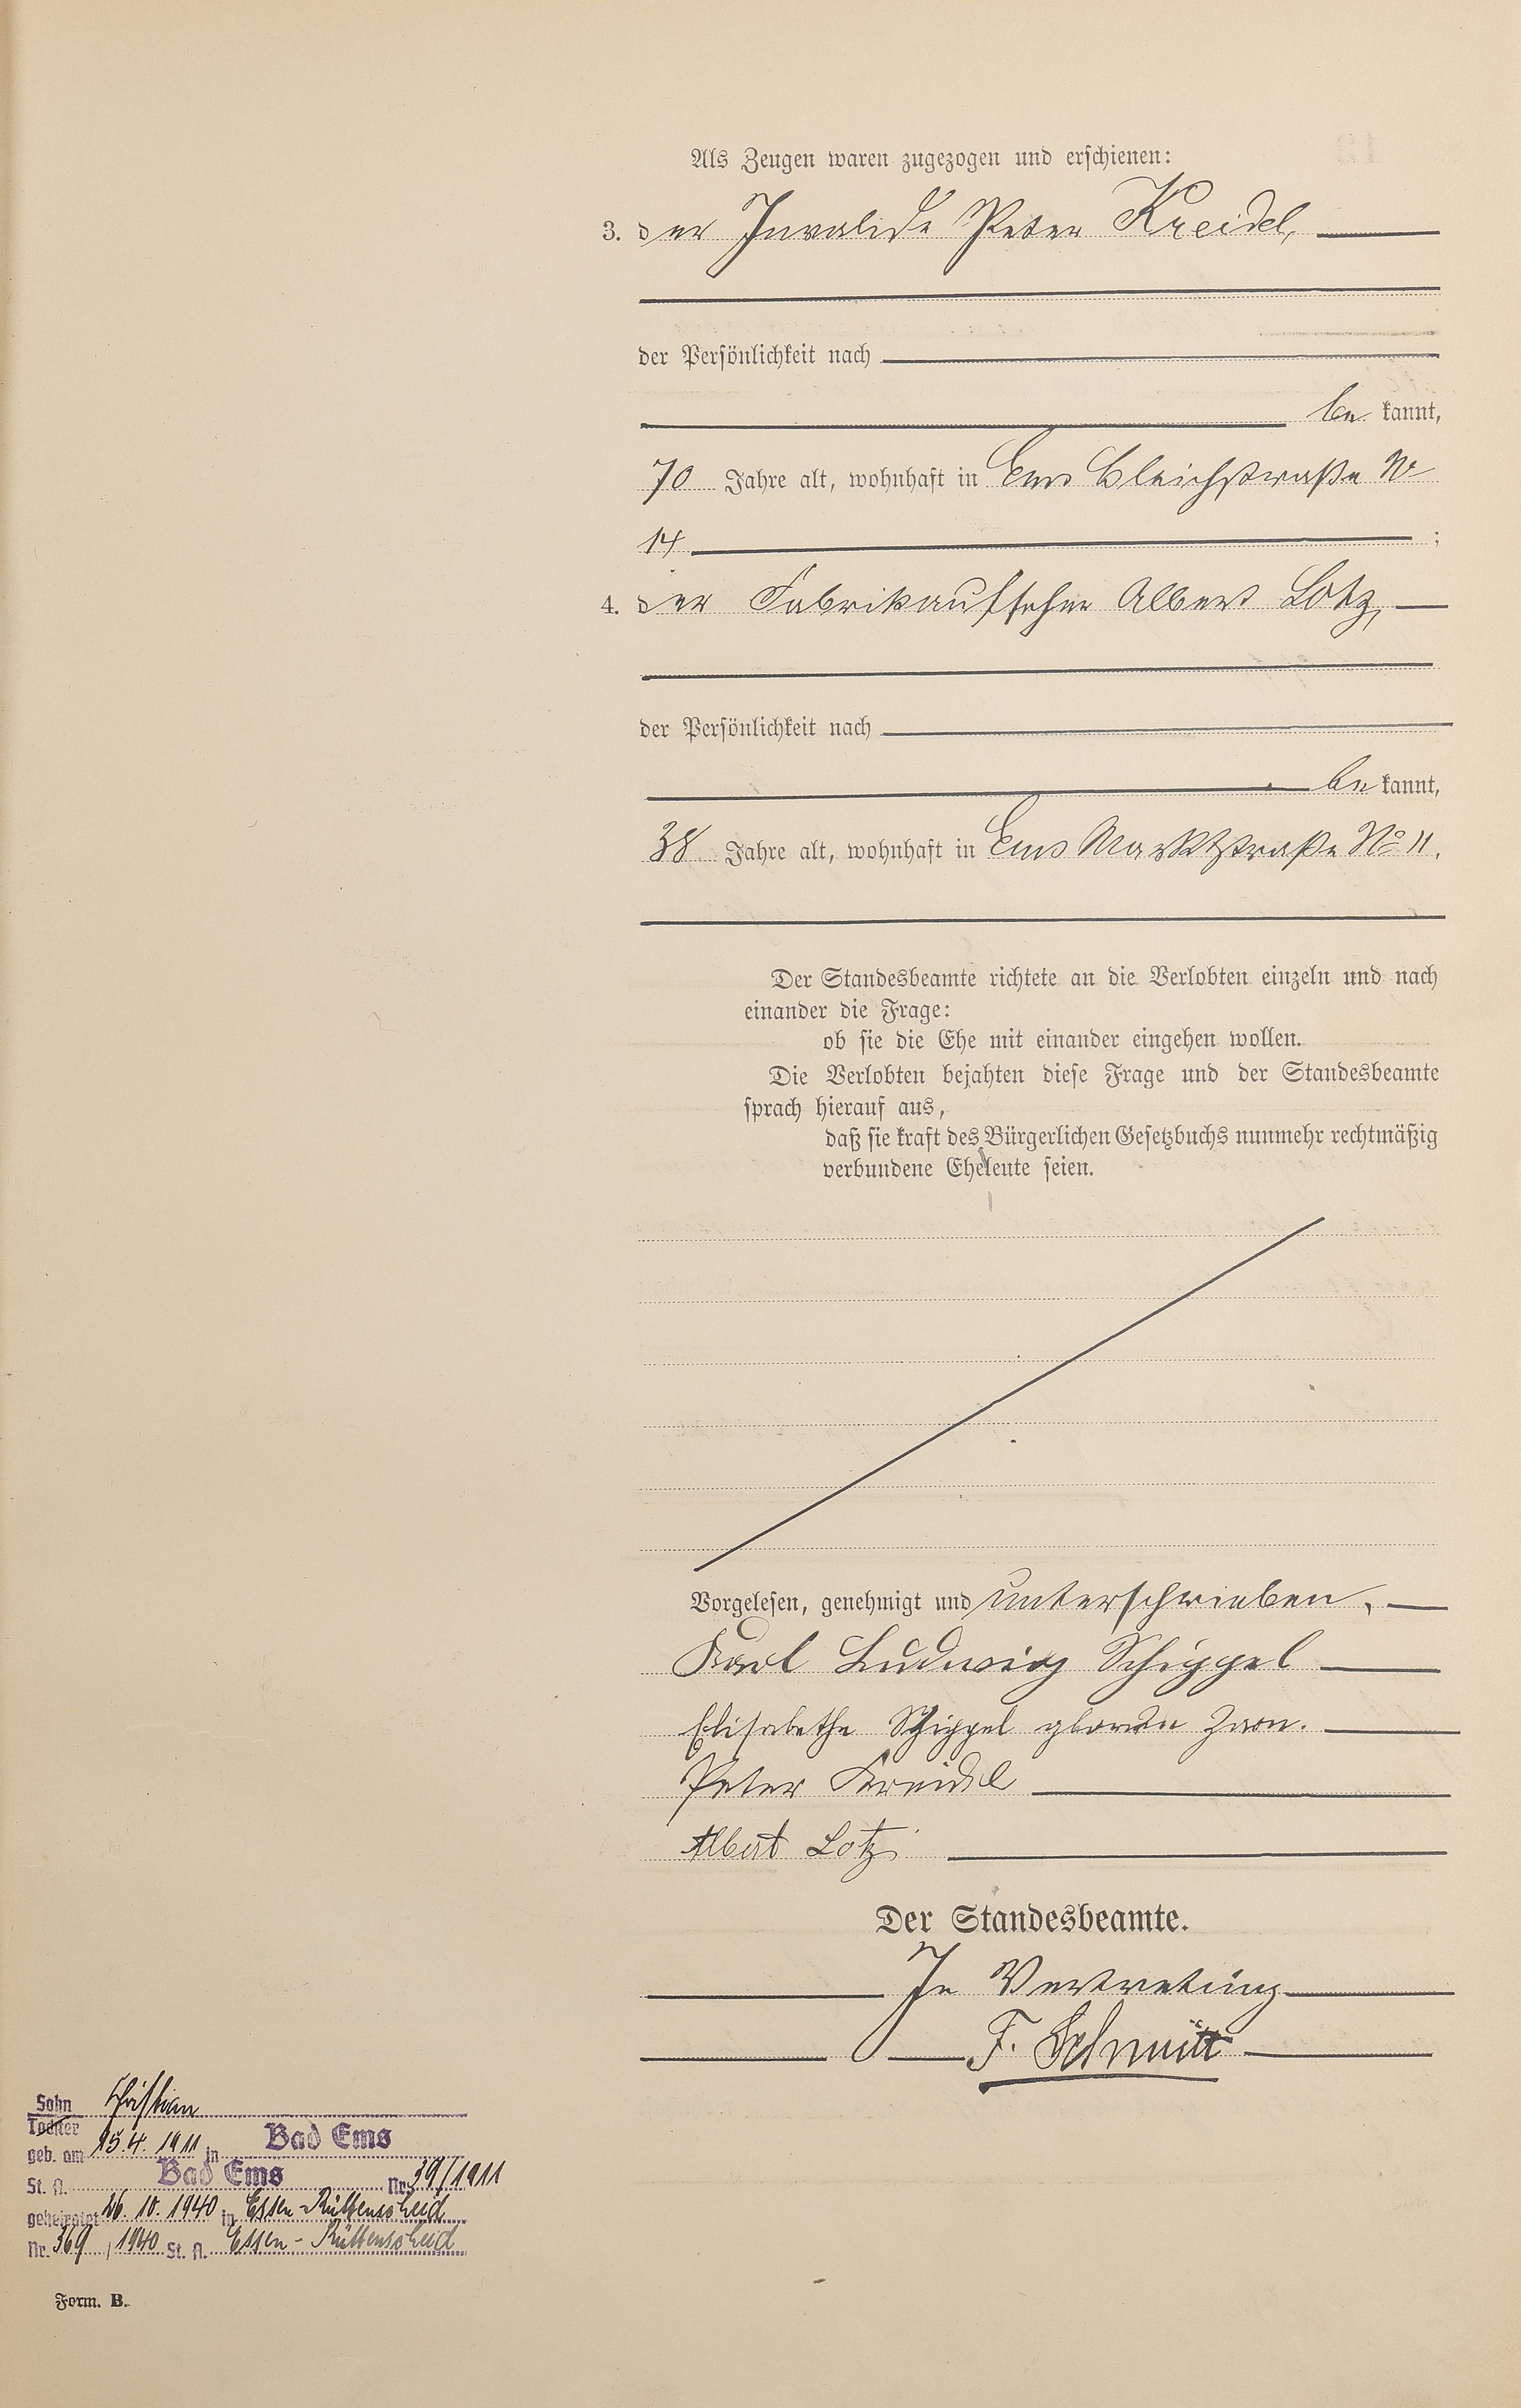 Als Zeugen waren zugezogen und erschienen:
3. der Invalide Peter Kreidel,
der Persönlichkeit nach
be kannt,
70 Jahre alt, wohnhaft in Ems Bleichstraße Nr
14 ;
4. der Fabrikaufseher Albert Lotz,
der Persönlichkeit nach
be kannt,
38 Jahre alt, wohnhaft in Ems Marktstraße No 11.
Der Standesbeamte richtete an die Verlobten einzeln und nach
einander die Frage:
ob sie die Ehe mit einander eingehen wollen.
Die Verlobten bejahten diese Frage und der Standesbeamte
sprach hierauf aus,
daß sie kraft des Bürgerlichen Gesetzbuchs nunmehr rechtmäßig
verbundene Eheleute seien.
Vorgelesen, genehmigt und unterschrieben.
Karl Ludwig Schippel
Elisabethe Schippel
Peter Kreidel
Albert Lotz
Der Standesbeamte.
In Vertretung
F. Schmitt
Sohn Christian
Tochter
geb. am 15.4.1911 in Bad Ems
St. A. Bad Ems Nr. 39/1911
geheiratet 26.10.1940 in Essen-Rüttenscheid
Nr. 369 / 1940 St. A. Essen-Rüttenscheid
Form. B.